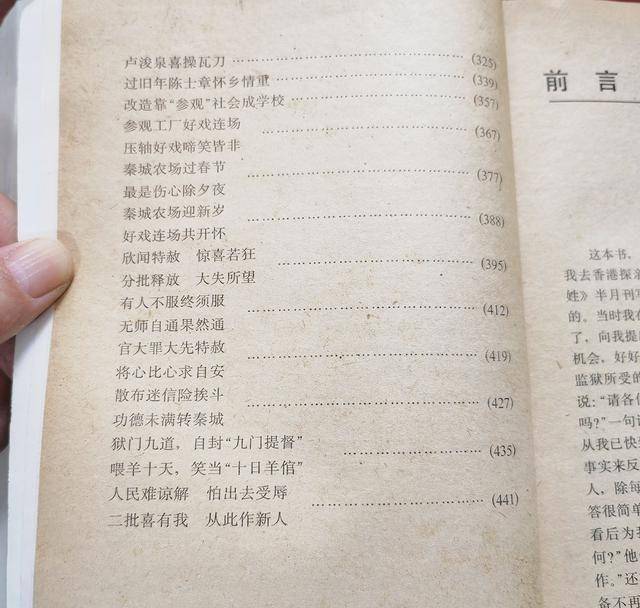 卢浚泉喜操瓦刀……………………………………(325)
过旧年陈士章怀乡情重……………………………(339)
改造靠“参观”社会成学校…………………………(357)
参观工厂好戏连场 ……………………………(367)
压轴好戏啼笑皆非
秦城农场过春节 ………………………………(377)
最是伤心除夕夜
秦城农场迎新岁 ………………………………(388)
好戏连场共开怀
欣闻特赦 惊喜若狂 …………………………(395)
分批释放 大失所望
有人不服终须服 ………………………………(412)
无师自通果然通
官大罪大先特赦 ………………………………(419)
将心比心求自安
散布迷信险挨斗 ………………………………(427)
功德未满转秦城
狱门九道，自封“九门提督” ……………………(435)
喂羊十天，笑当“十日羊倌”
人民难谅解 怕出去受辱 ……………………(441)
二批喜有我 从此作新人
前言
这本书，
我去香港探亲
姓》半月刊写
的。当时我在
了，向我提
机会，好好
监狱所受的
说：“请各位
吗？”一句话
从我已快
事实来反
人，除每
答很简单
看后为我
何？”他
作。”还
备不再